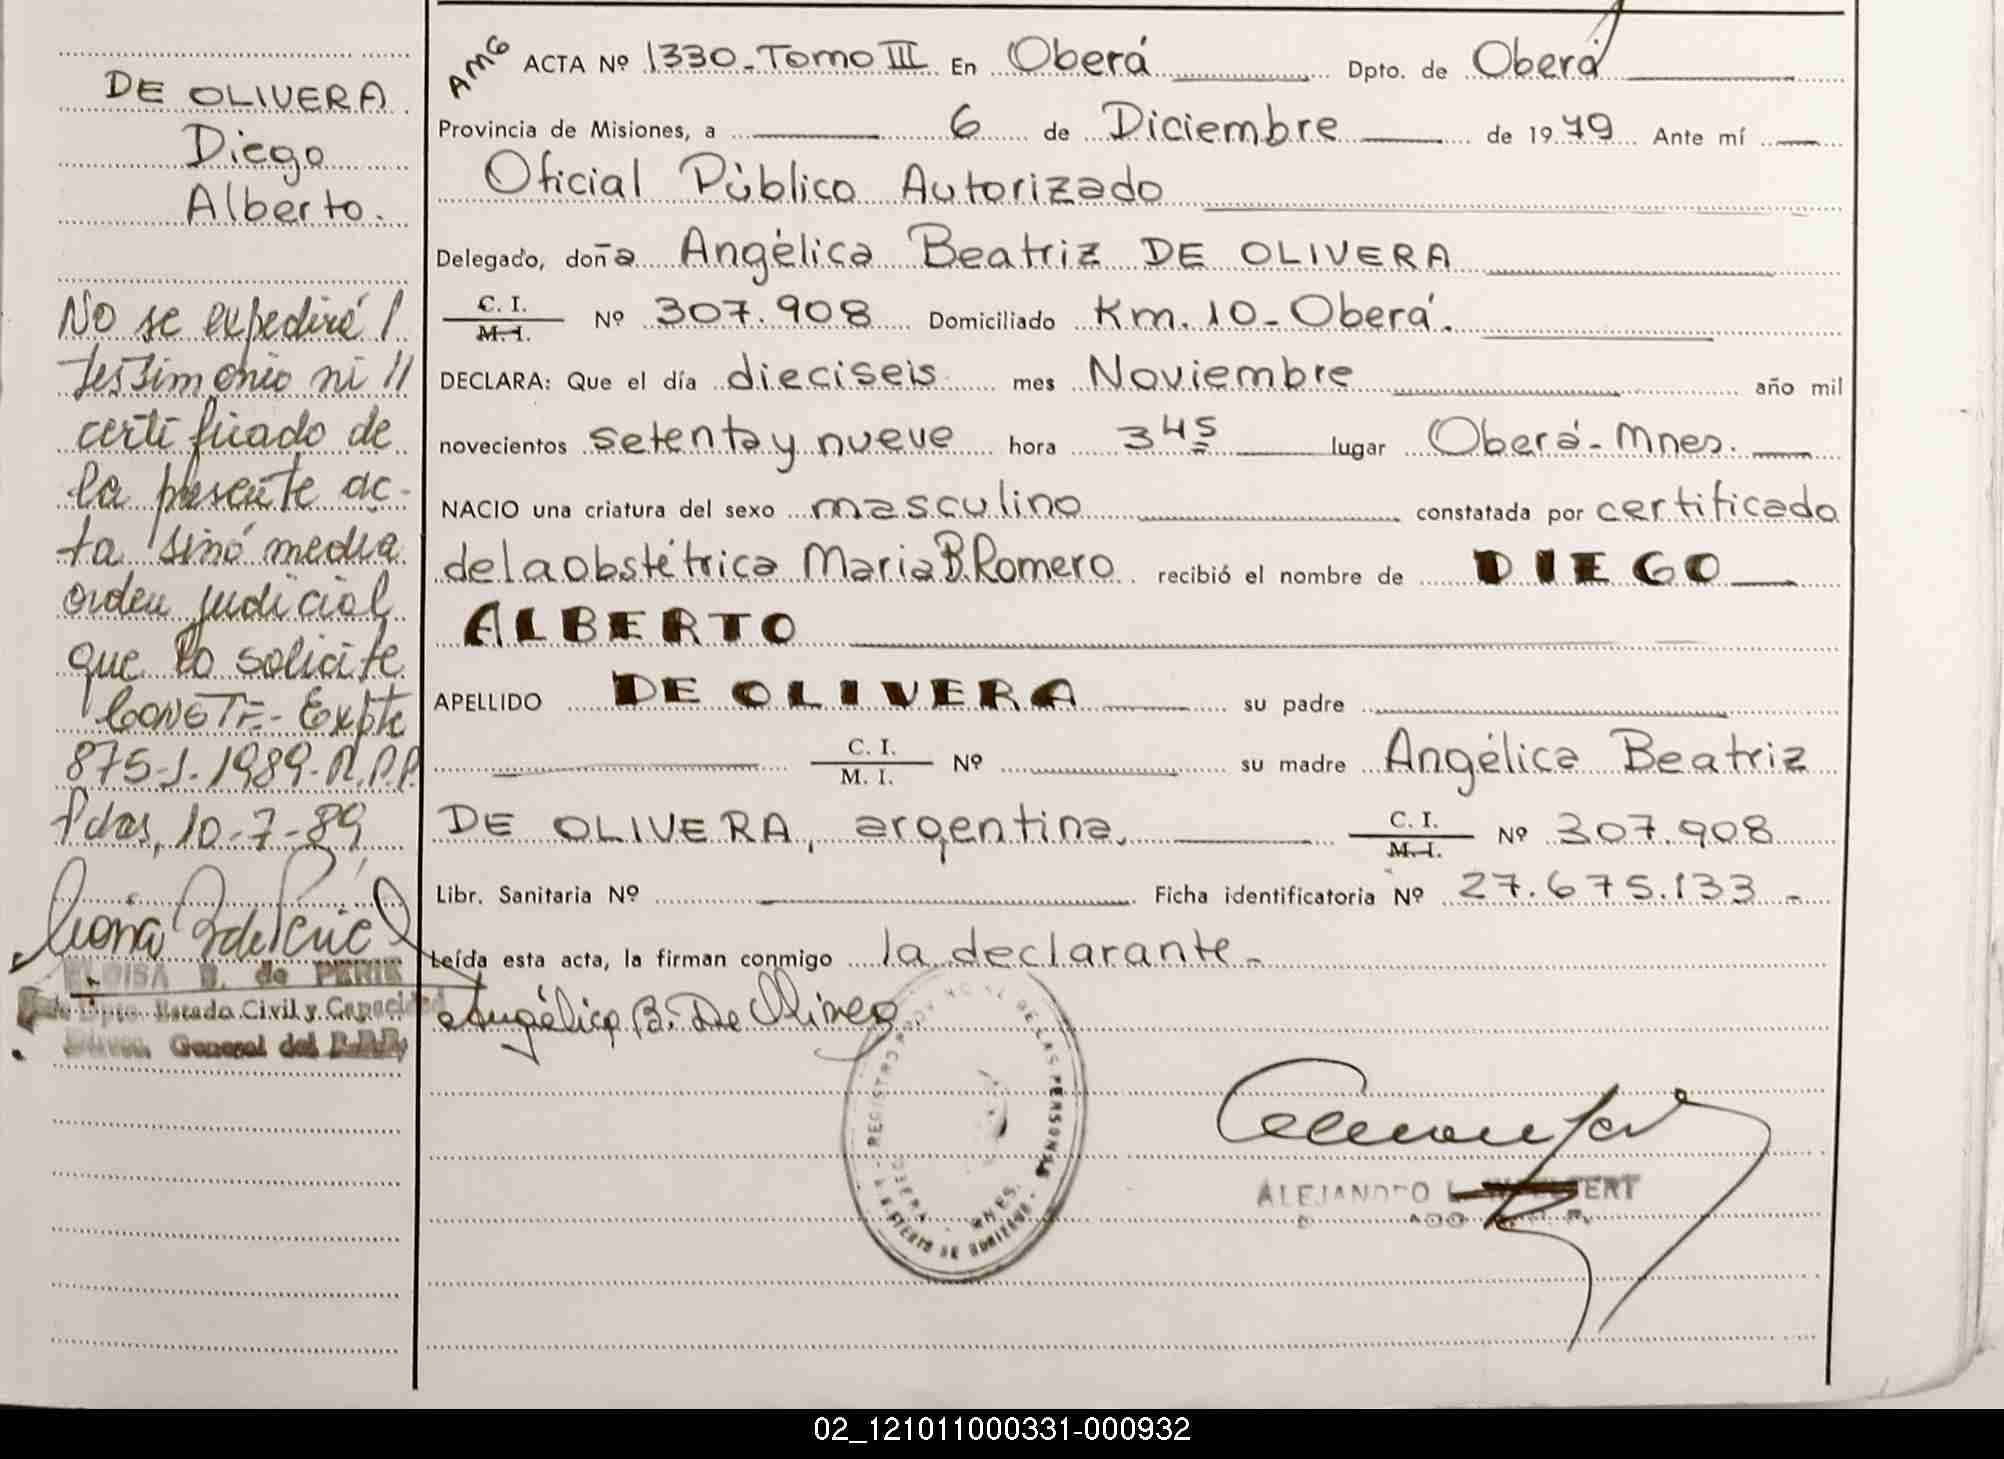 DE OLIVERA
Diego
Alberto.
No se expedirá /
testimonio ni //
certificado de
la presente ac-
ta sinó media
orden judicial
que lo solicite
CONSTE- Expte
875-J-1989-R.P.P.
Pdas, 10-7-89
ELOISA B. de PERIE
Dpto. Estado Civil y Capacidad
General del R.P.P.
AMG ACTA Nº 1330-Tomo III En Oberá Dpto. de Oberá
Provincia de Misiones, a 6 de Diciembre de 1979 Ante mí
Oficial Público Autorizado
Delegado, doña Angélica Beatriz DE OLIVERA
C. I. / M. I. Nº 307.908 Domiciliado Km. 10-Oberá.
DECLARA: Que el día dieciseis mes Noviembre año mil
novecientos setenta y nueve hora 3 45 lugar Oberá-Mnes.
NACIO una criatura del sexo masculino constatada por certificado
de la obstétrica Maria B. Romero recibió el nombre de DIEGO
ALBERTO
APELLIDO DE OLIVERA su padre
C. I. / M. I. Nº su madre Angélica Beatriz
DE OLIVERA, argentina, C. I. / M. I. Nº 307.908
Libr. Sanitaria Nº Ficha identificatoria Nº 27.675.133-
Leída esta acta, la firman conmigo la declarante-
Angélica B. De Olivera
REGISTRO DE LAS PERSONAS
OBERA - MNES.
ALEJANDRO L.
02_121011000331-000932